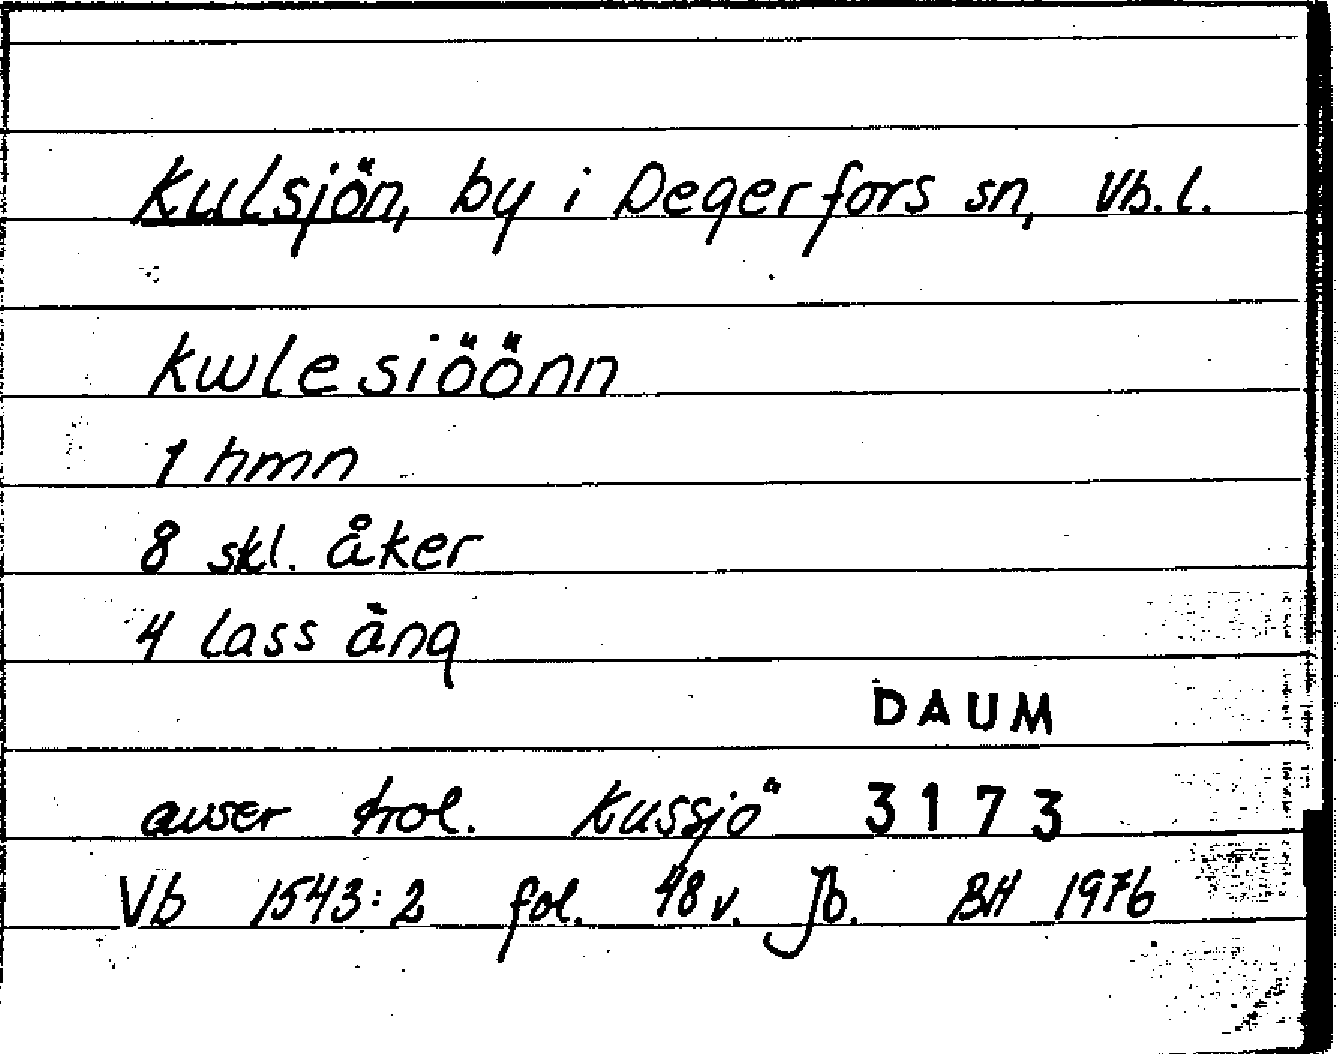 Kulsjön, by i Degerfors sn, Vb.l.
Kwlesiöönn
1 hmn
8 skl. åker
4 lass äng
DAUM
avser trol. Kussjö 3173
Vb 1543:2 fol. 48 v. Jb. BH 1976